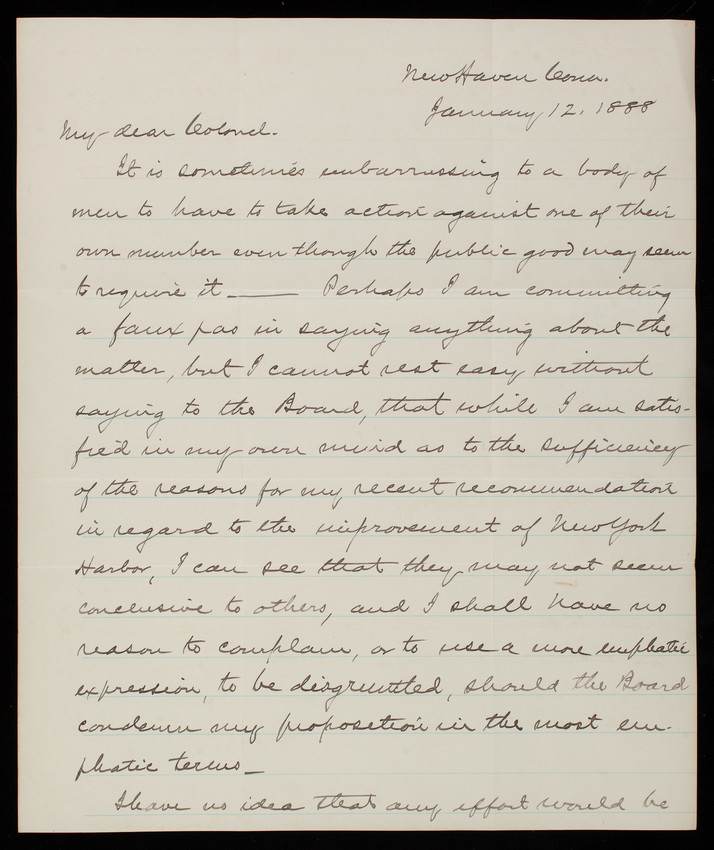 New Haven Conn.
January 12. 1888
My dear Colonel.
It is sometimes embarrassing to a body of
men to have to take action against one of their
own number even though the public good may seem
to require it —— Perhaps I am committing
a faux pas in saying anything about the
matter, but I cannot rest easy without
saying to the Board, that while I am satis-
fied in my own mind as to the sufficiency
of the reasons for my recent recommendation
in regard to the improvement of New York
Harbor, I can see that they may not seem
conclusive to others, and I shall have no
reason to complain, or to use a more emphatic
expression, to be disgruntled, should the Board
condemn my proposition in the most em-
phatic terms —
I have no idea that any effort would be